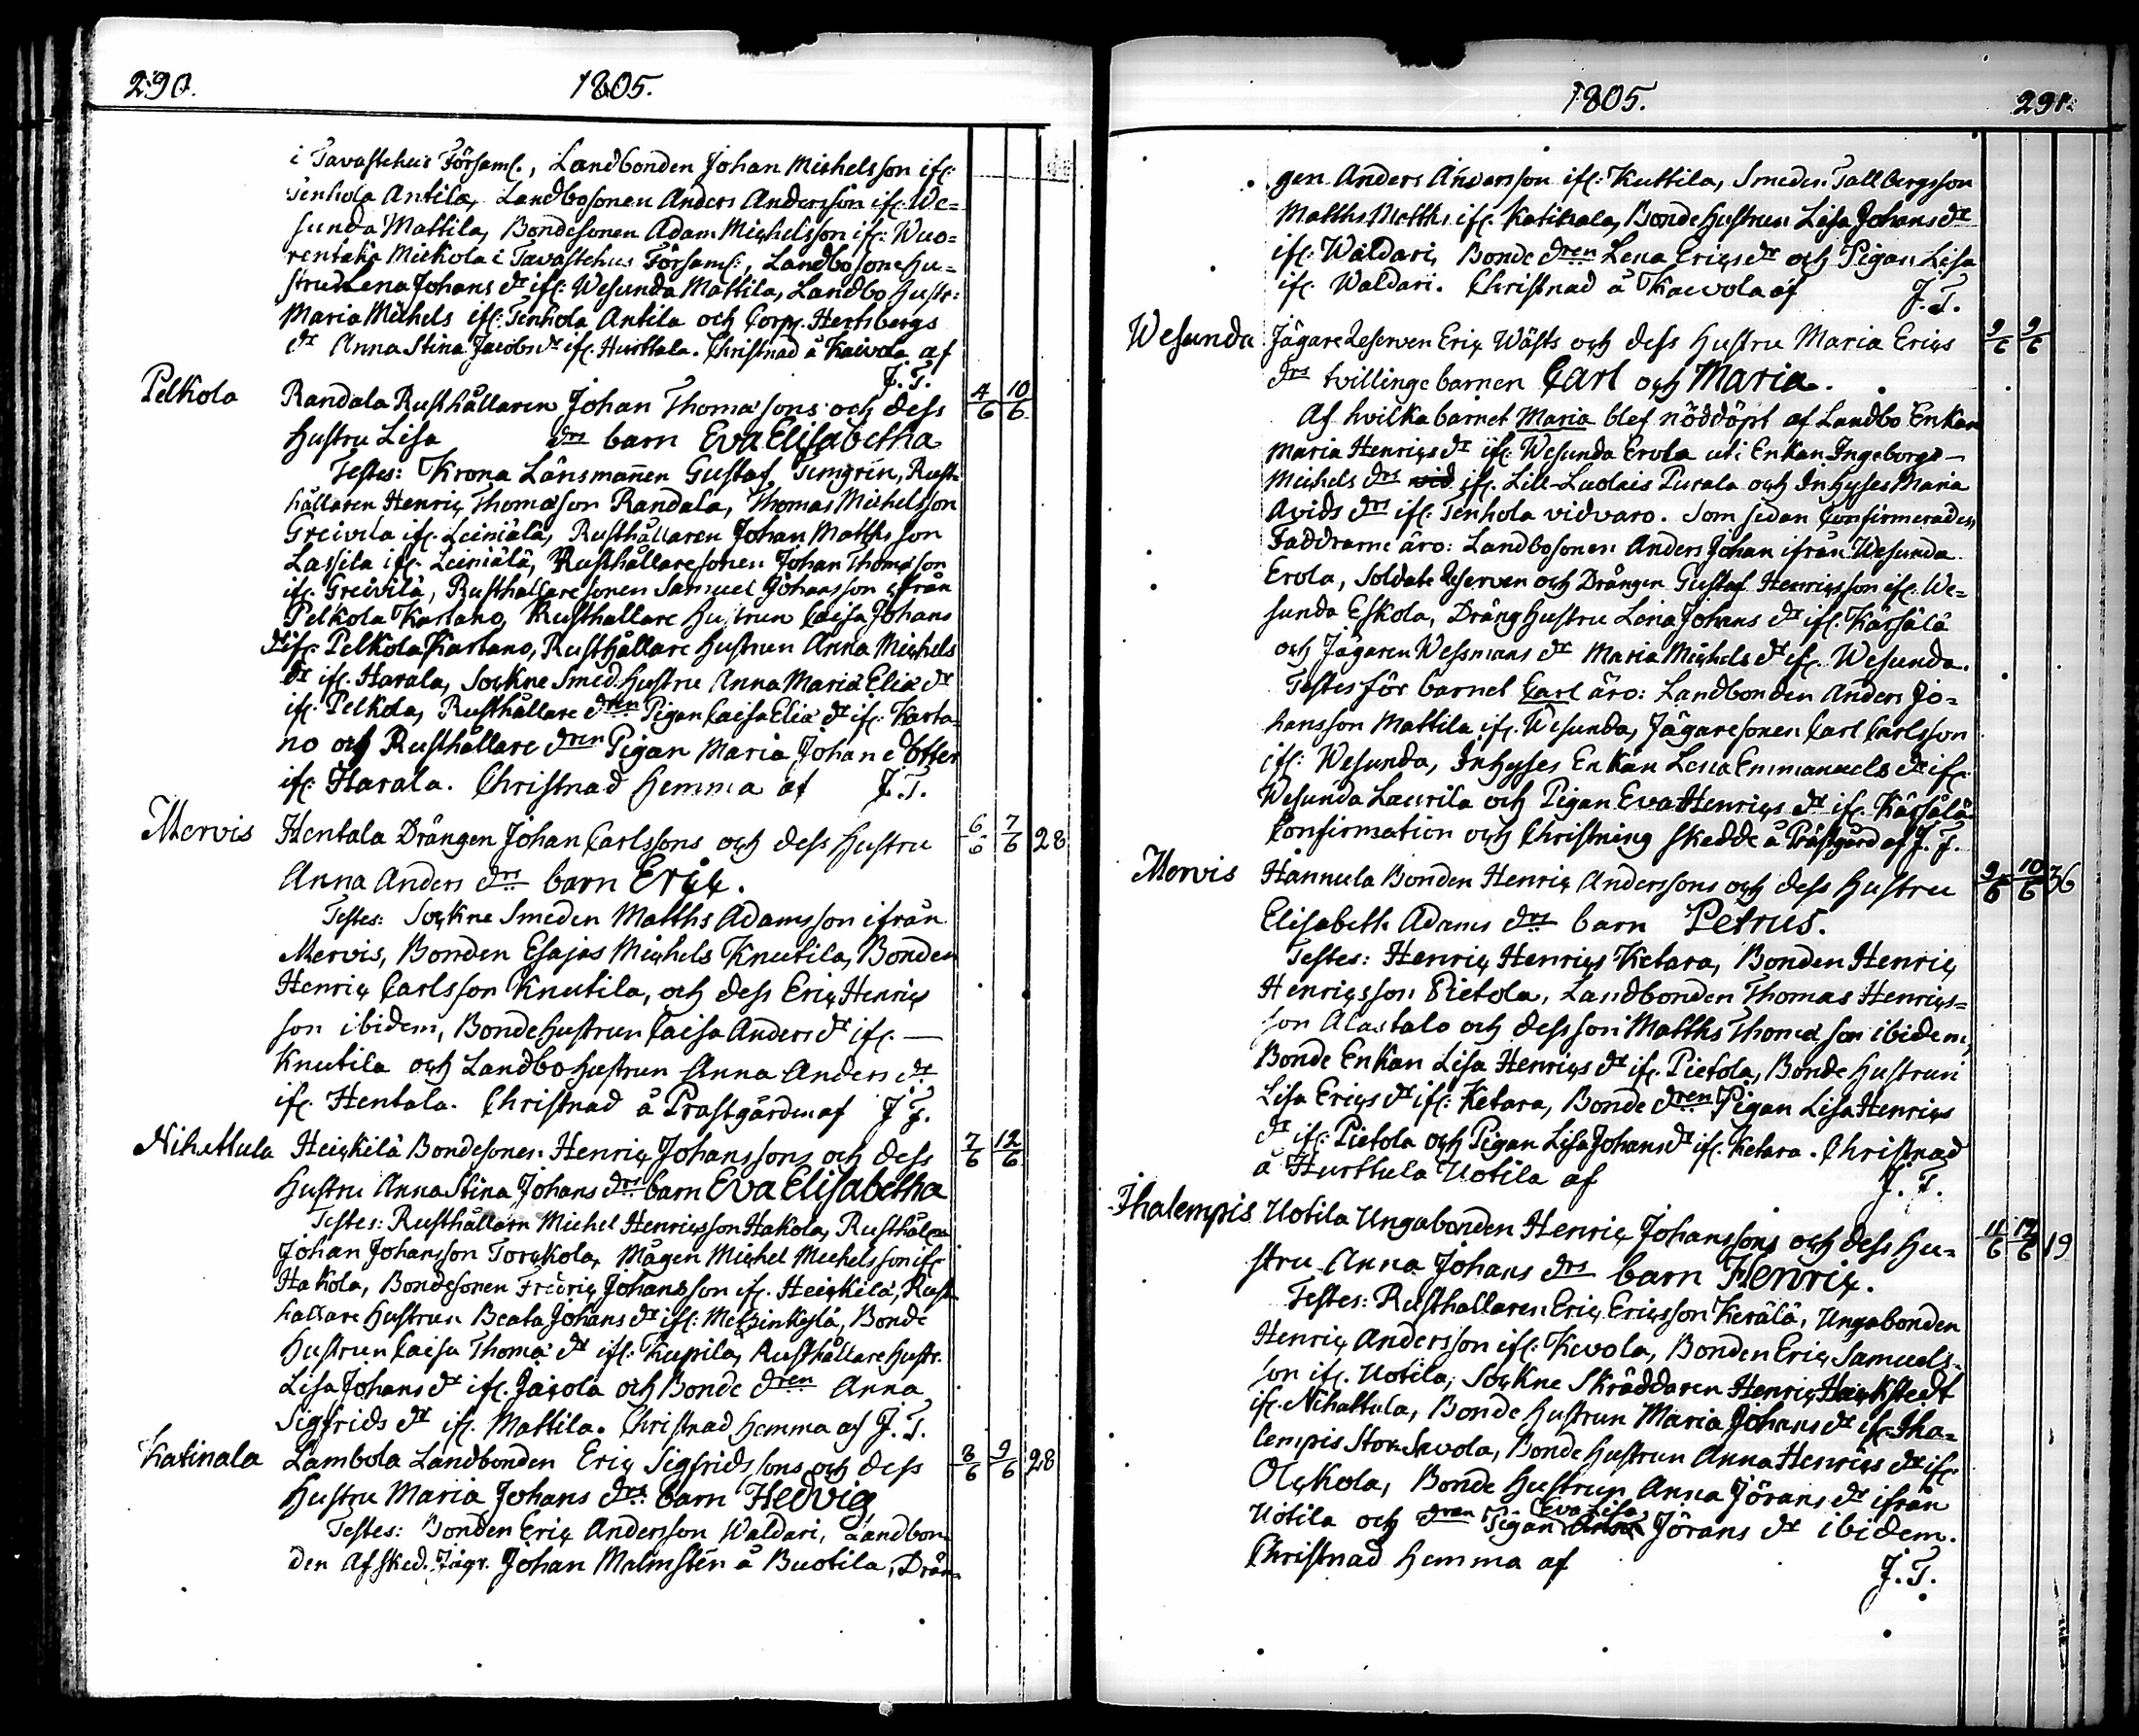 290.
1805.
i Tavastehus Församl., Landbonden Johan Michelsson ifr:
Tenhola Antila, Landbosonen Anders Andersson ifr. We=
sunda Mattila, Bondesonen Adam Michelsson ifr: Wuo=
rentaka Mickola i Tavastehus Församl:, Landbosonehu=
strun Lena Johans dr ifr: Wesunda Mattila, Landbo Hustr:
Maria Michels ifr: Tenhola Antila och Corp. Hertsbergs
dr Anna Stina Jacobs dr ifr. Hurttala. Christnad å Kaivola af
J. T.
Pelkola Randala Rusthållaren Johan Thomæsons och dess 4/6 10/6
Hustru Lisa drs barn Eva Elisabetha
Testes: Krona Länsmannen Gustaf Timgrén, Rust=
hållaren Henric Thomæson Randala, Thomas Michelsson
Greivila ifr. Leiniälä, Rusthållaren Johan Matthsson
Lassila ifr. Leiniälä, Rusthållaresonen Johan Thomæson
ifr. Greivilä, Rusthållaresonen Samuel Johansson ifrån
Pelkola Kartano, Rusthållare Hustrun Caisa Johans
dr ifr. Pelkola Kartano, Rusthållare Hustrun Anna Michels
dr ifr. Harala, Sockne Smed Hustru Anna Maria Eliæ dr
ifr. Pelkola, Rusthållare dren Pigan Caisa Eliæ dr ifr. Karta=
no och Rusthållare dren Pigan Maria Johan e dotter
ifr. Harala. Christnad hemma af J. T.
Mervis Hentala Drängen Johan Carlssons och dess Hustru 6/6 7/6 28
Anna Anders drs barn Eric.
Testes: Sockne Smeden Matths Adamsson ifrån
Mervis, Bonden Esajas Michels Knutila, Bonden
Henric Carlsson Knutila, och dess Eric Henrics
son ibidem, Bondehustrun Caisa Anders dr ifr. —
Knutila och Landbohustrun Anna Anders dr
ifr. Hentala. Christnad å Prästgården af J. T.
Nihattula Heickilä Bondesonen Henric Johanssons och dess 7/6 12/6
Hustru Anna Stina Johans drs barn Eva Elisabetha
Testes: Rusthållarn Michel Henricsson Hakola, Rusthållarn
Johan Johansson Torckola, Mågen Michel Michelsson ifr
Hakola, Bondesonen Fredric Johansson ifr. Heickilä, Rust
hållare Hustrun Beata Johans dr ifr: Metzinkylä, Bonde
Hustrun Caisa Thomæ dr ifr: Kupila, Rusthållare Hustr.
Lisa Johans dr ifr. Jaicola och Bonde dren Anna
Sigfrids dr ifr. Mattila. Christnad hemma af J. T.
Katinala Lambola Landbonden Eric Sigfridssons och dess 8/6 9/6 28
Hustru Maria Johans drs barn Hedvig
Testes: Bonden Eric Andersson Waldari, Landbon=
den Afsked. Jägr. Johan Malmstén å Buotila, Drän=
1805.
291.
gen Anders Andersson ifr: Kuttila, Smedes. Tallbergsson
Matths Matths ifr. Katinala, Bonde Hustrun Lisa Johans dr
ifr: Waldari, Bonde dren Lena Erics dr och Pigan Lisa
ifr. Waldari. Christnad å Kaivola af J. T.
Wesunda Jägare Reserven Eric Wästs och dess Hustru Maria Erics 9/6 9/6
drs tvillingebarnen Carl och Maria.
Af hvilka barnet Maria blef nöddöpt af Landbo Enkan
Maria Henrics dr ifr. Wesunda Erola uti Enkan Ingeborgs —
Michels drs vid ifr. Lill-Luolais Purala och Inhyses Maria
Avids drs ifr. Tenhola vidvaro. Som sedan Confirmerades,
Faddrarne äro: Landbosonen Anders Johan ifrån Wesunda
Erola, Soldate Reserven och Drängen Gustaf Henricsson ifr. We=
sunda Eskola, Dräng Hustru Lena Johans dr ifr. Kärsälä
och Jägaren Wessmans dr Maria Michels dr ifr. Wesunda.
Testes för barnet Carl äro: Landbonden Anders Jo=
hansson Mattila ifr. Wesunda, Jägaresonen Carl Carlsson
ifr: Wesunda, Inhyses Enkan Lena Emmanuels dr ifr.
Wesunda Laurila och Pigan Eva Henrics dr ifr. Kärsälä
Confirmation och Christning skedde å Prästgård af J. T.
Mervis Hannula Bonden Henric Anderssons och dess Hustru 9/6 10/6 36
Elisabeth Adams drs barn Petrus.
Testes: Henric Henrics Ketara, Bonden Henric
Henricsson Pietola, Landbonden Thomas Henrics=
son Alastalo och dess son Matths Thomæson ibidem,
Bonde Enkan Lisa Henrics dr ifr. Pietola, Bonde Hustrun
Lisa Erics dr ifr: Ketara, Bonde dren Pigan Lisa Henrics
dr ifr: Pietola och Pigan Lisa Johans dr ifr. Ketara. Christnad
å Hurttula Uotila af J. T.
Ihalempis Uotila Ungabonden Henric Johanssons och dess Hu= 11/6 12/6 19
stru Anna Johans drs barn Henric.
Testes: Rusthållaren Eric Ericsson Kerälä, Ungabonden
Henric Andersson ifr: Kevola, Bonden Eric Samuels=
son ifr. Uotila, Sockne Skräddaren Henric Heickstedt
ifr. Nihattula, Bonde Hustrun Maria Johans dr ifr. Iha=
lempis Stor Savola, Bonde Hustrun Anna Henrics dr ifr.
Olckola, Bonde Hustrun Anna Jörans dr ifrån
Uotila och dren Pigan Eva Lisa Jörans dr ibidem.
Christnad hemma af J. T.